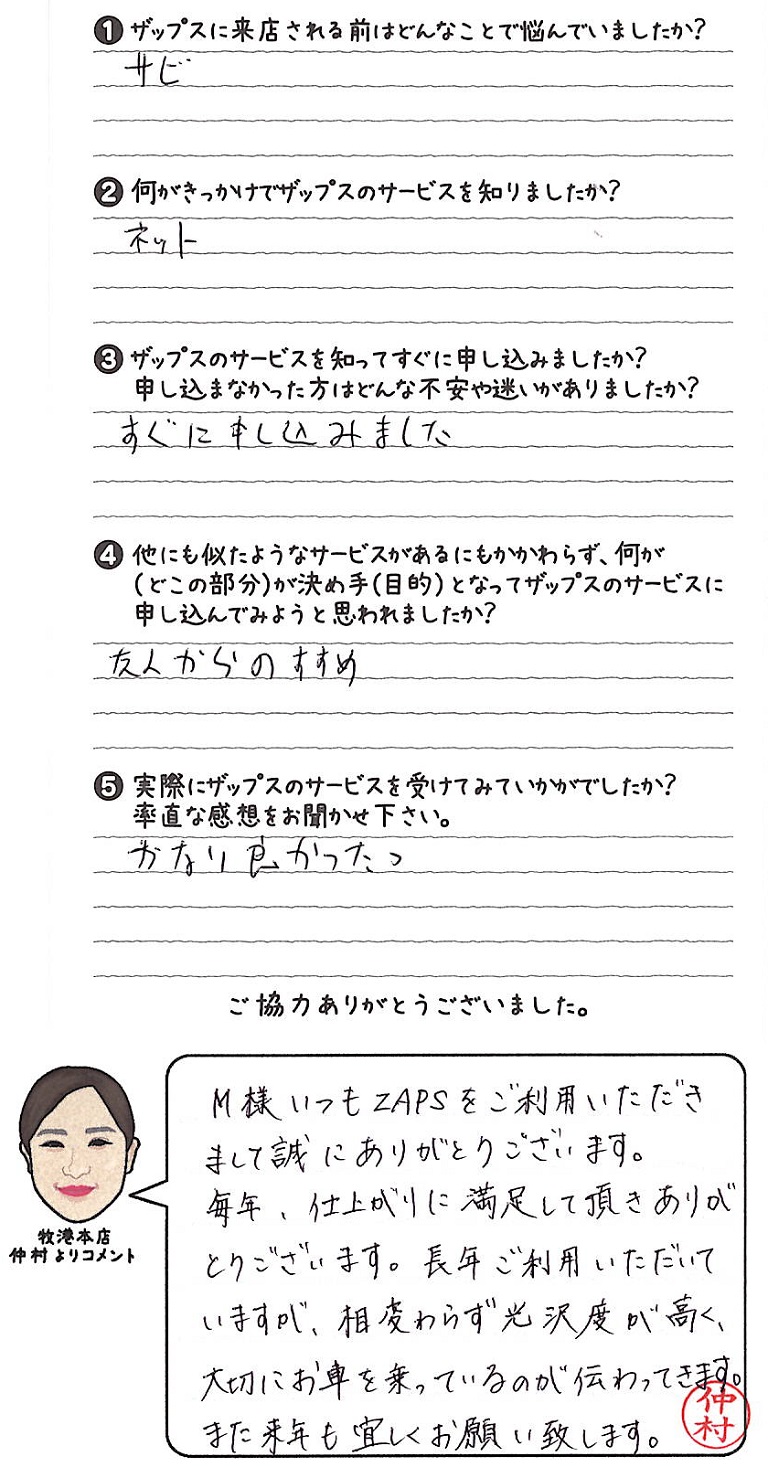 1 ザップスに来店される前はどんなことで悩んでいましたか?
サビ
2 何がきっかけでザップスのサービスを知りましたか?
ネット
3 ザップスのサービスを知ってすぐに申し込みましたか?
申し込まなかった方はどんな不安や迷いがありましたか?
すぐに申し込みました
4 他にも似たようなサービスがあるにもかかわらず、何が
(どこの部分)が決め手(目的)となってザップスのサービスに
申し込んでみようと思われましたか?
友人からのすすめ
5 実際にザップスのサービスを受けてみていかがでしたか?
率直な感想をお聞かせ下さい。
かなり良かった。
ご協力ありがとうございました。
M様いつもZAPSをご利用いただき
まして誠にありがとうございます。
毎年、仕上がりに満足して頂きありが
とうございます。長年ご利用いただいて
いますが、相変わらず光沢度が高く、
大切にお車を乗っているのが伝わってきます。
また来年も宜しくお願い致します。
仲村
牧港本店
仲村よりコメント